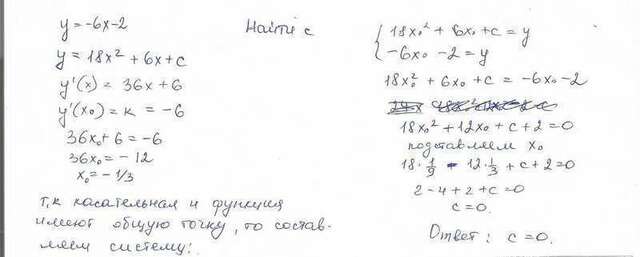 y = -6x-2
y = 18x² + 6x + c
y'(x) = 36x + 6
y'(x₀) = k = -6
36x₀ + 6 = -6
36x₀ = -12
x₀ = -1/3
т.к касательная и функция
имеют общую точку, то состав-
ляем систему:
Найти c
{ 18x₀² + 6x₀ + c = y
-6x₀ - 2 = y
18x₀² + 6x₀ + c = -6x₀ - 2
18x₀² + 12x₀ + c + 2 = 0
подставляем x₀
18·1/9 - 12·1/3 + c + 2 = 0
2 - 4 + 2 + c = 0
c = 0.
Ответ: c = 0.